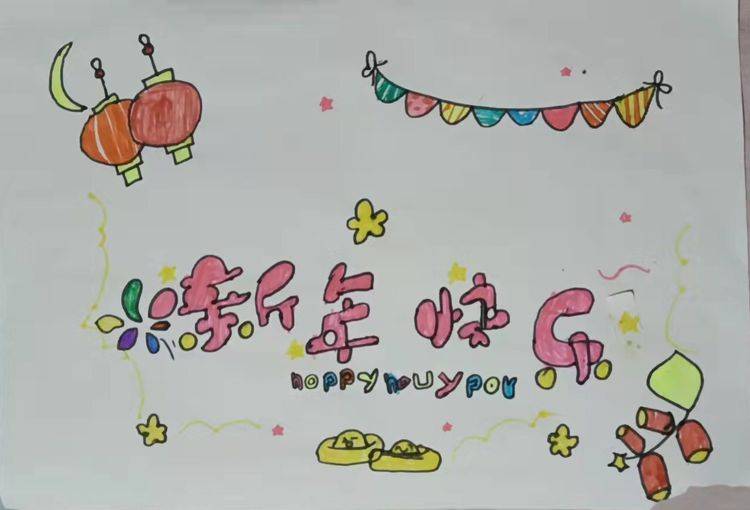 新年快乐
hoppy nouy poy